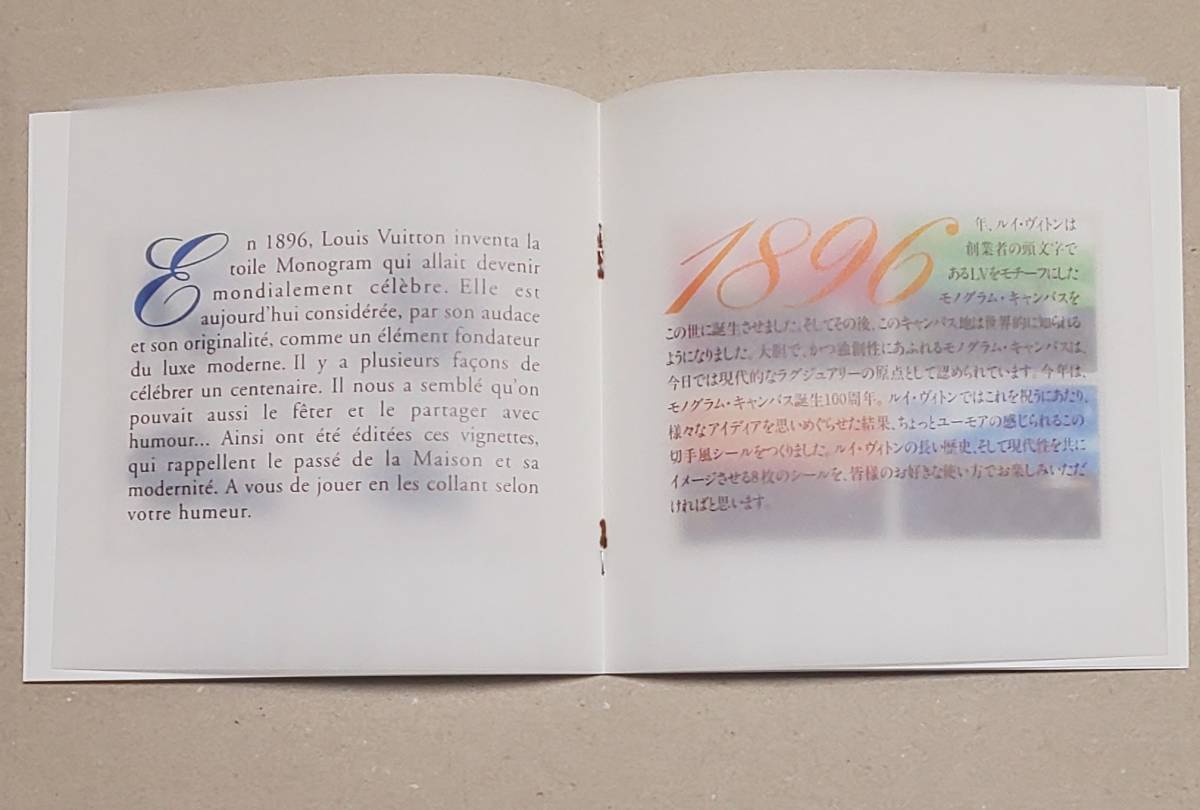 En 1896, Louis Vuitton inventa la
toile Monogram qui allait devenir
mondialement célèbre. Elle est
aujourd'hui considérée, par son audace
et son originalité, comme un élément fondateur
du luxe moderne. Il y a plusieurs façons de
célébrer un centenaire. Il nous a semblé qu'on
pouvait aussi le fêter et le partager avec
humour... Ainsi ont été éditées ces vignettes,
qui rappellent le passé de la Maison et sa
modernité. A vous de jouer en les collant selon
votre humeur.
1896年、ルイ・ヴィトンは
創業者の頭文字で
あるLVをモチーフにした
モノグラム・キャンバスを
この世に誕生させました。そしてその後、このキャンバス地は世界的に知られる
ようになりました。大胆で、かつ独創性にあふれるモノグラム・キャンバスは、
今日では現代的なラグジュアリーの原点として認められています。今年は、
モノグラム・キャンバス誕生100周年。ルイ・ヴィトンではこれを祝うにあたり、
様々なアイディアを思いめぐらせた結果、ちょっとユーモアの感じられるこの
切手風シールをつくりました。ルイ・ヴィトンの長い歴史、そして現代性を共に
イメージさせる8枚のシールを、皆様のお好きな使い方でお楽しみいただ
ければと思います。